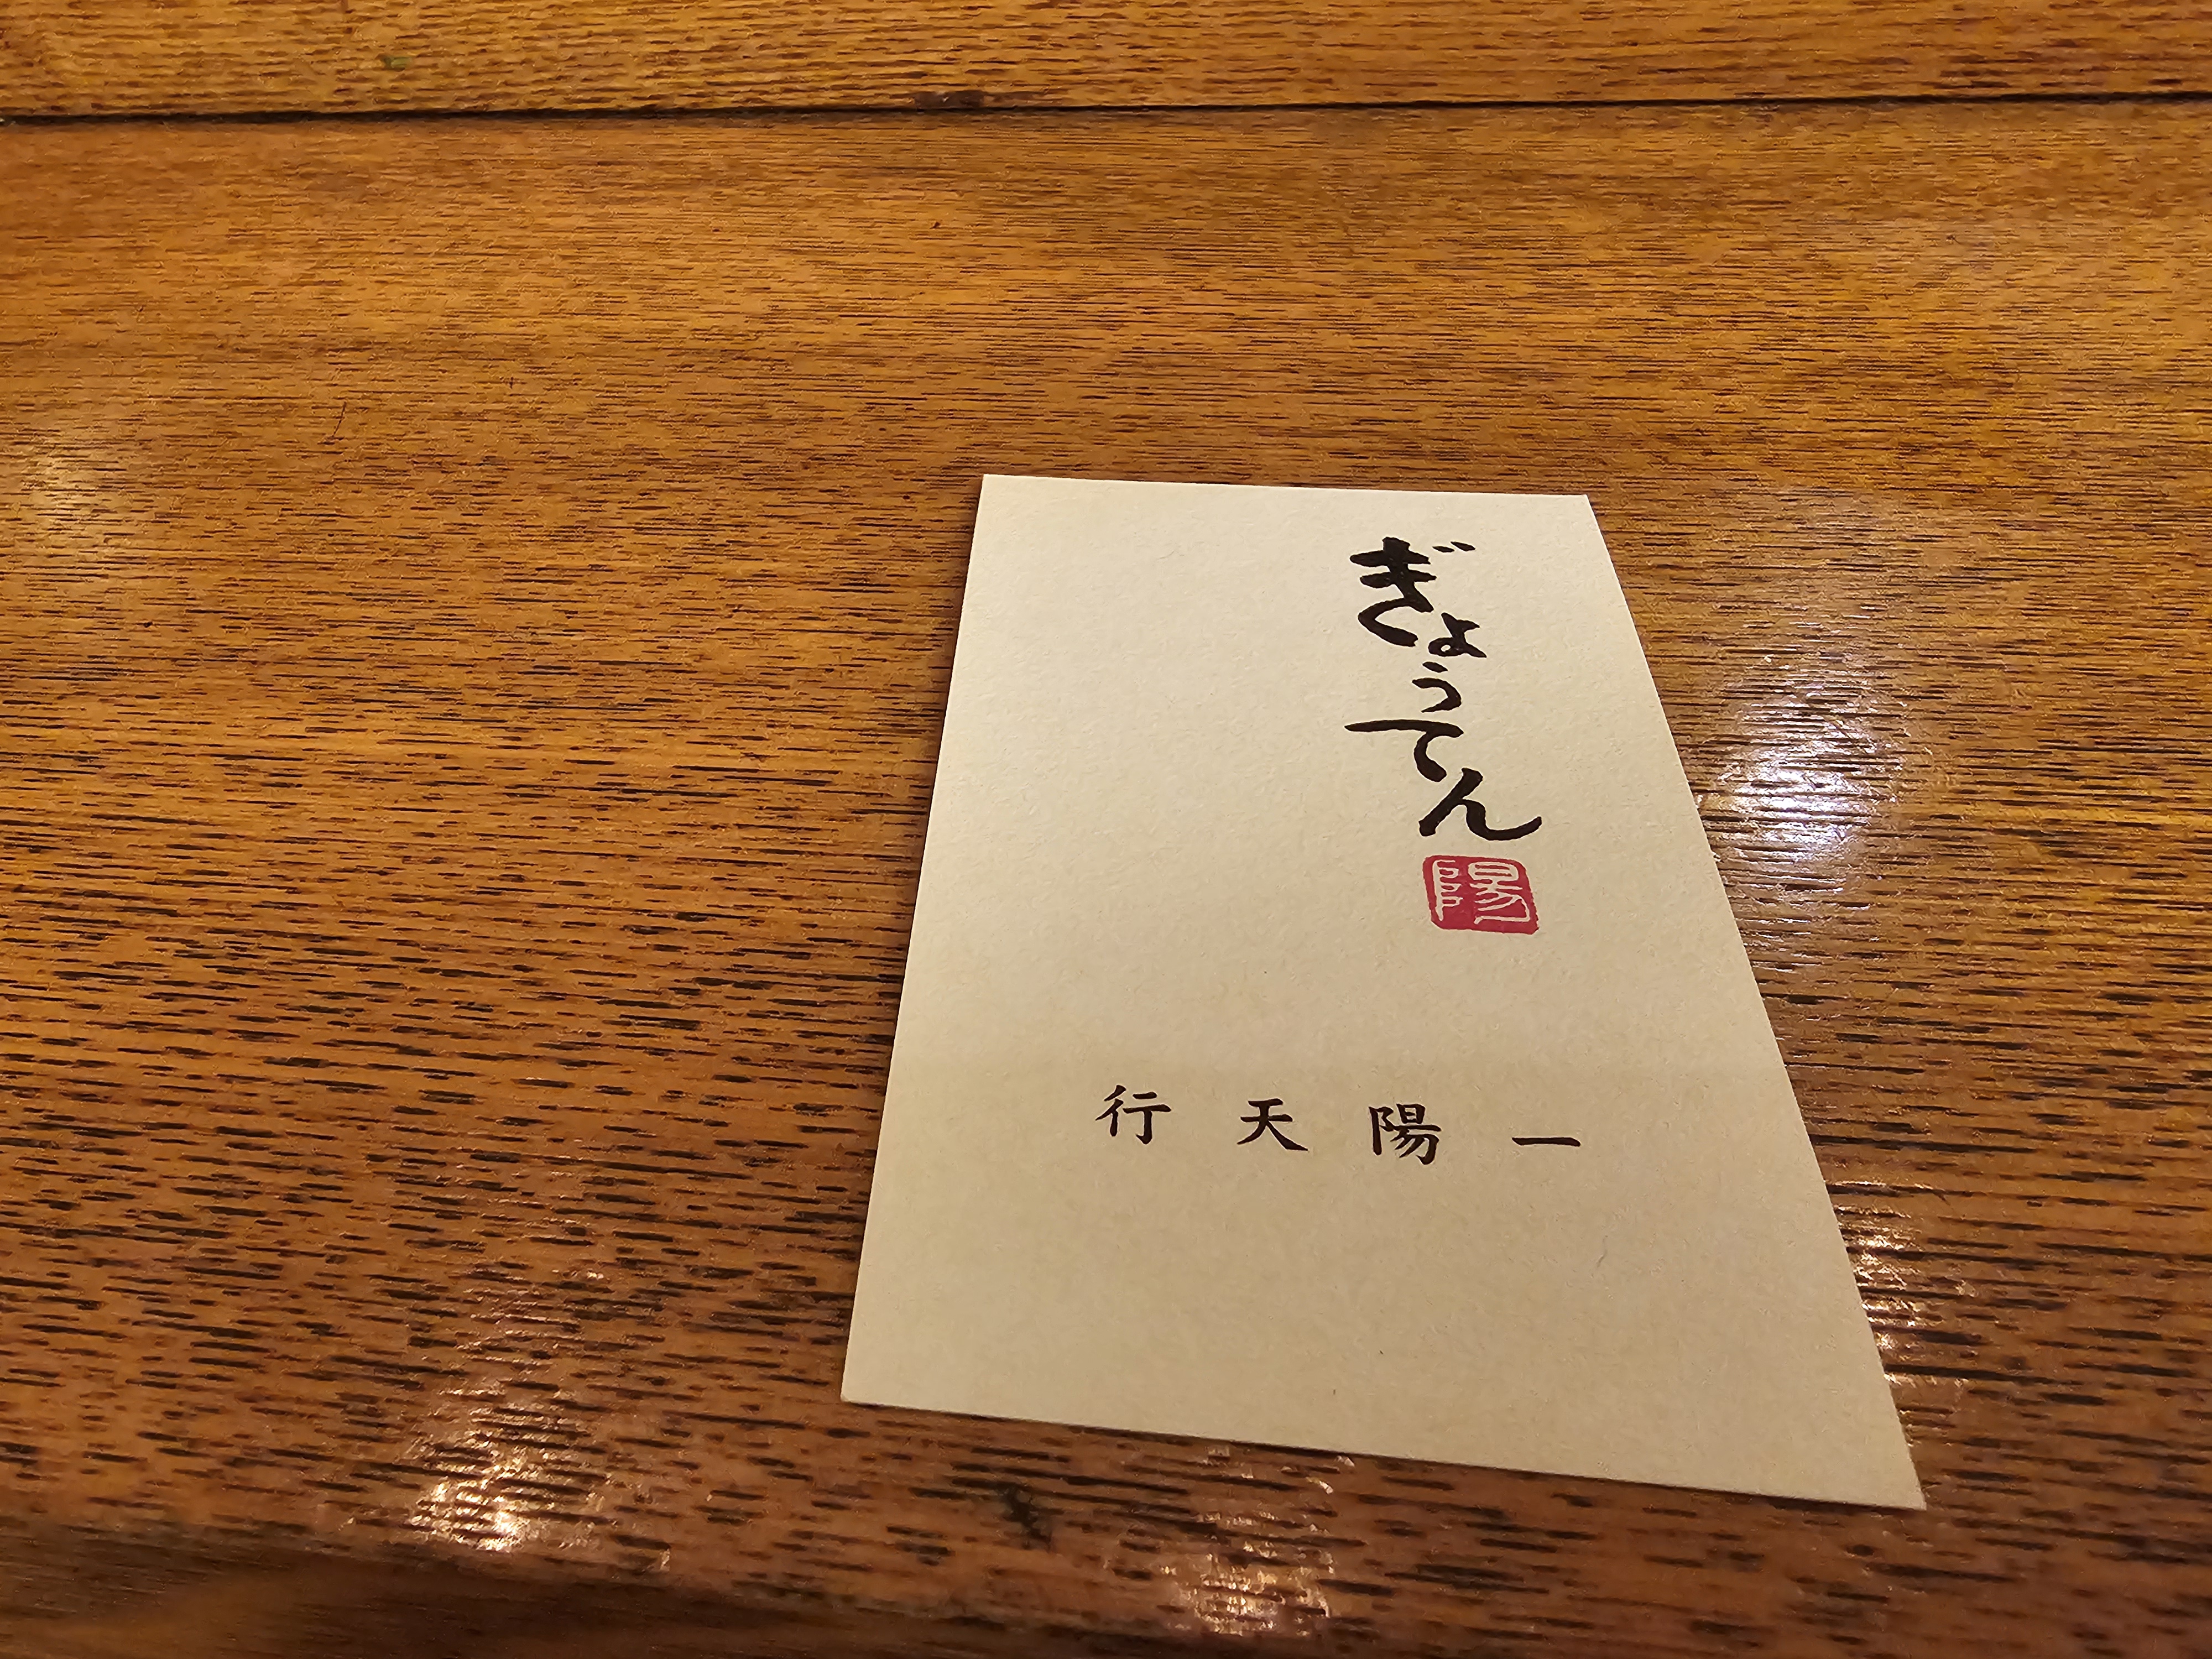 ぎょうてん
陽
一陽天行